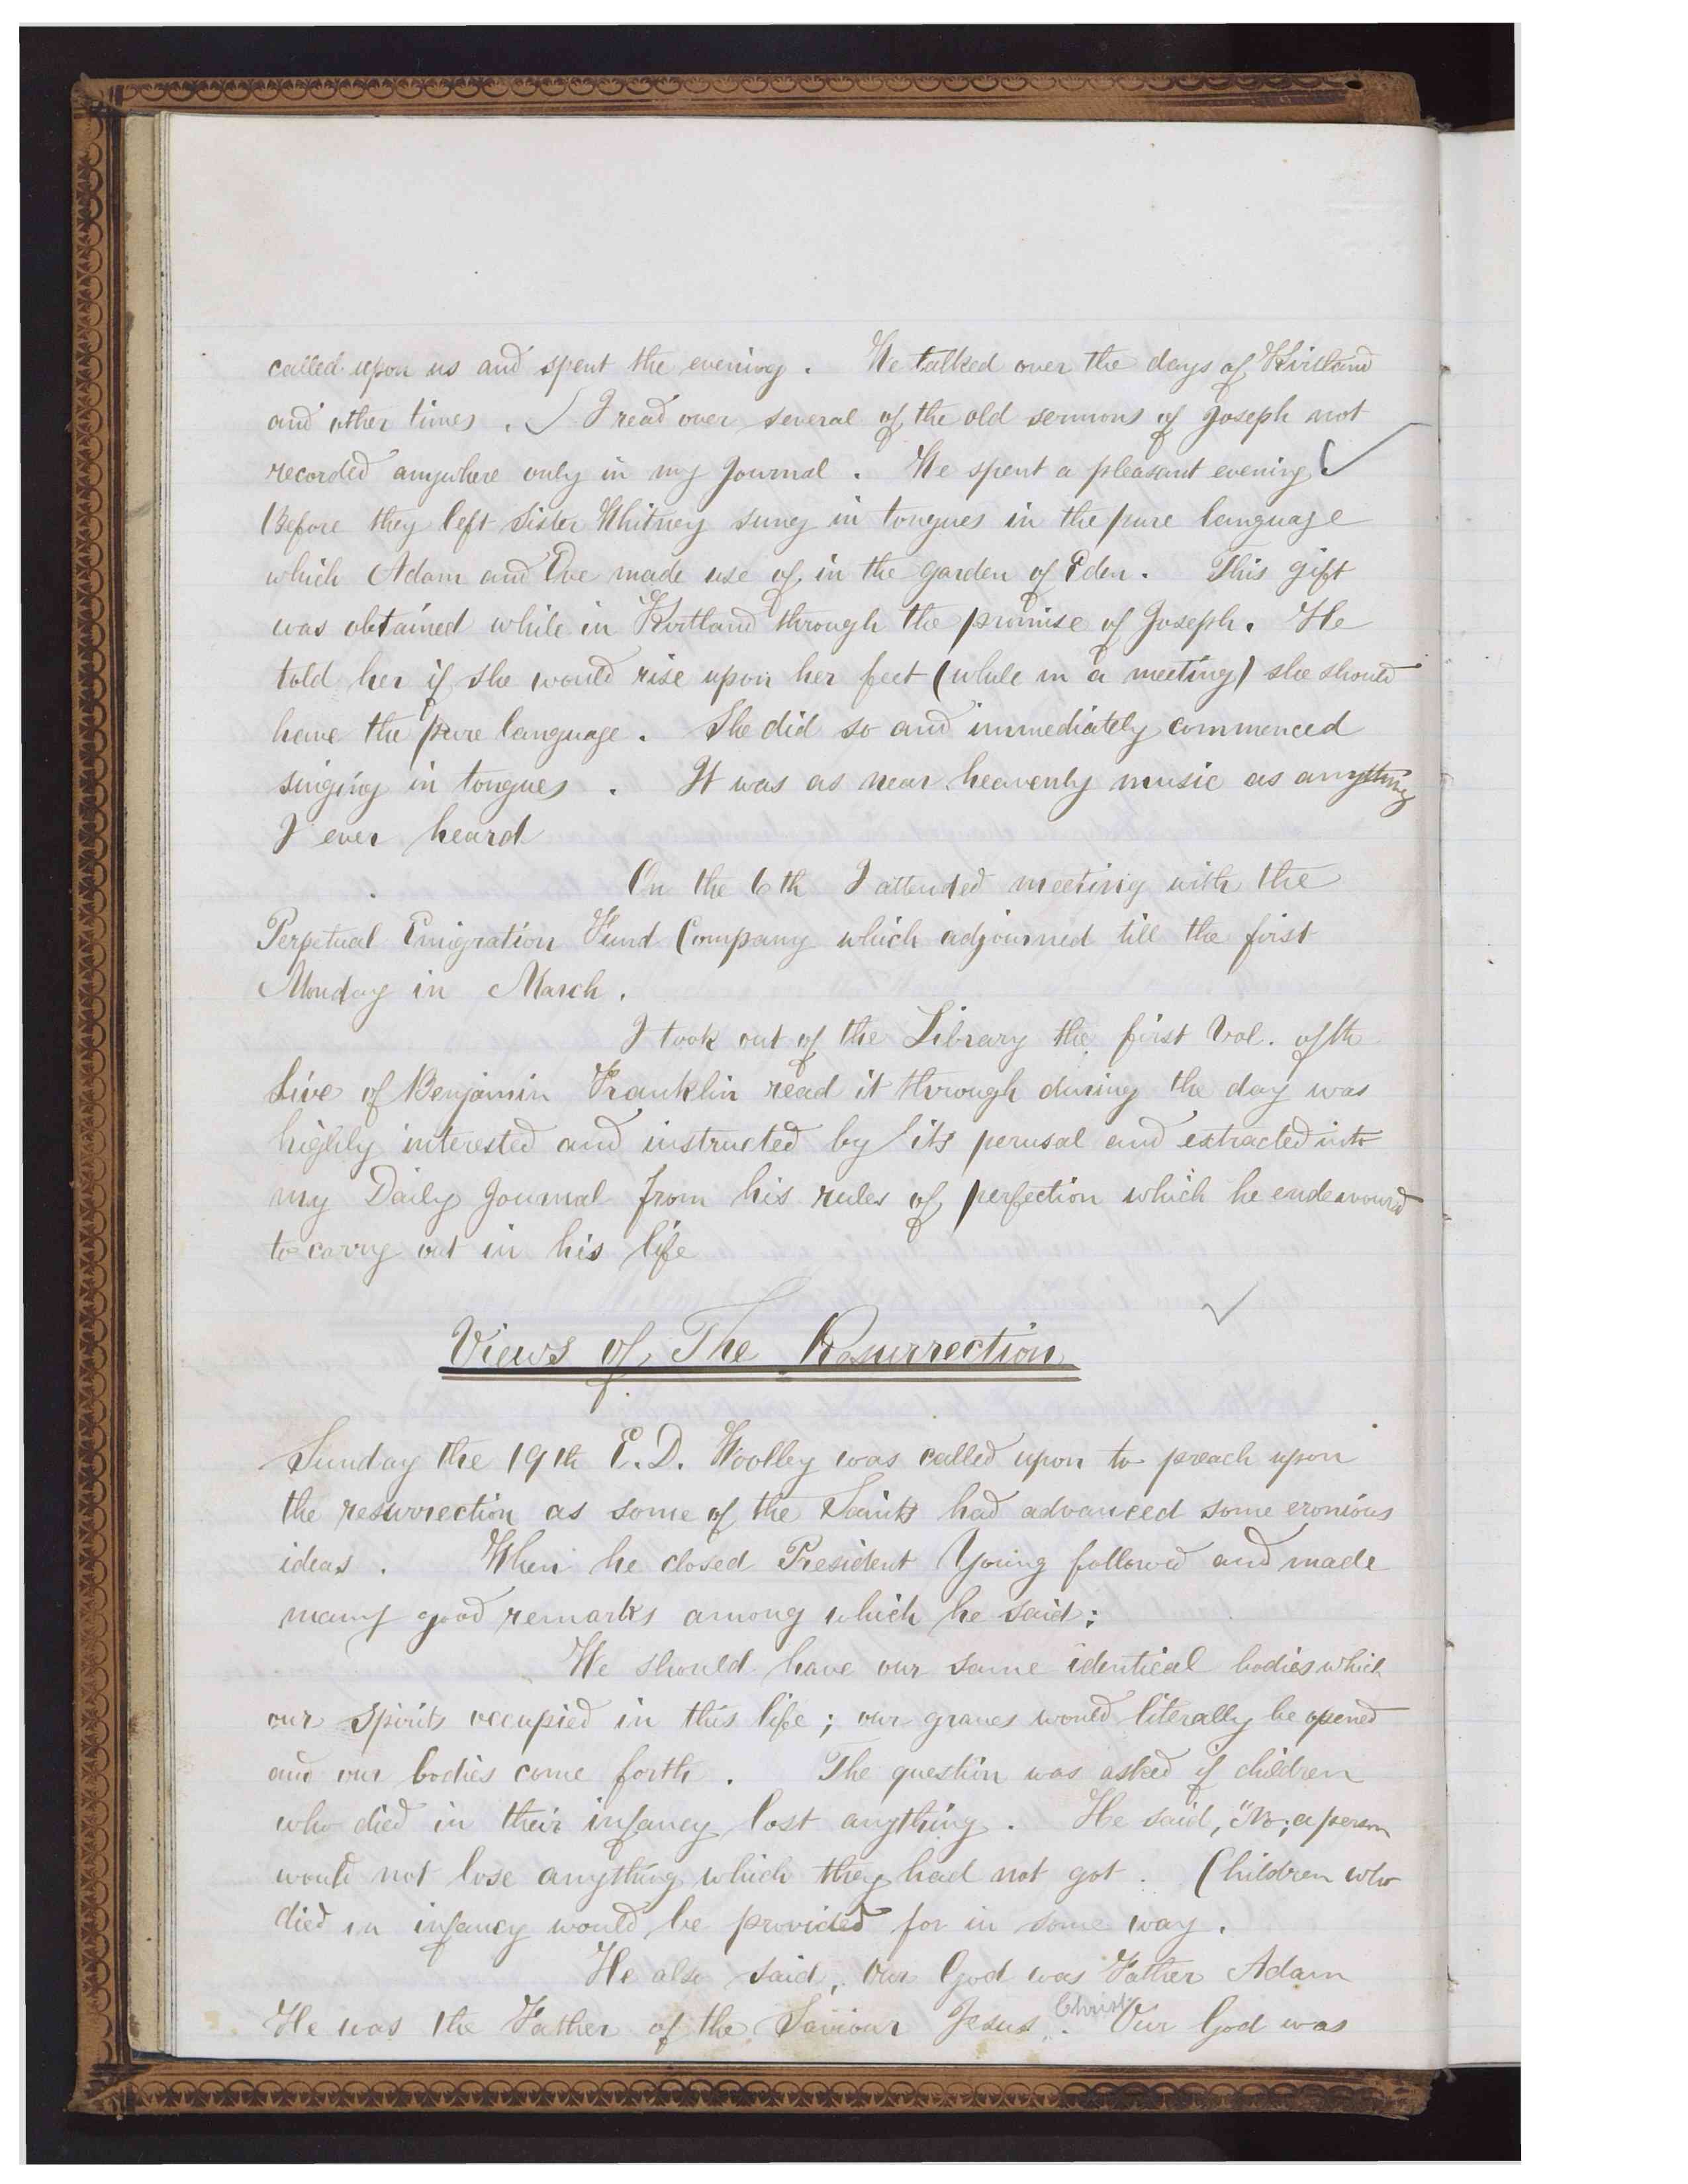 called upon us and spent the evening. We talked over the days of Kirtland
and other times. ✓ I read over several of the old sermons of Joseph not
recorded anywhere only in my Journal. We spent a pleasant evening ✓
Before they left Sister Whitney sung in tongues in the pure language
which Adam and Eve made use of in the garden of Eden. This gift
was obtained while in Kirtland through the promise of Joseph. He
told her if she would rise upon her feet (while in a meeting) she should
have the pure language. She did so and immediately commenced
singing in tongues. It was as near heavenly music as anything
I ever heard
On the 6th I attended meeting with the
Perpetual Emigration Fund Company which adjourned till the first
Monday in March.
I took out of the Library the first Vol. of th
Live of Benjamin Franklin read it through during the day was
highly interested and instructed by its perusal and extracted into
my Daily Journal from his rules of perfection which he endeavourd
to carry out in his life
✓
Views of The Resurrection
Sunday the 19th E. D. Woolley was called upon to preach upon
the resurrection as some of the Saints had advanced some eronious
ideas. When he closed President Young followed and made
many good remarks among which he said:
We should have our same identical bodies which
our spirits occupied in this life; our graves would literally be opened
and our bodies come forth. The question was asked if children
who died in their infancy lost anything. He said, "No; a person
would not lose anything which they had not got. Children who
died in infancy would be provided for in some way.
He also said, Our God was Father Adam
He was the Father of the Saviour Jesus Christ. Our God was